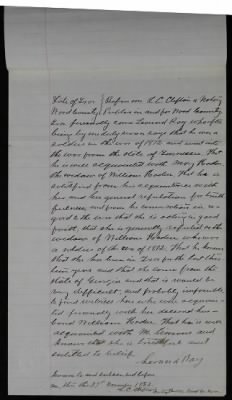 State of Texas } Before me L. C. Clifton a Notary
Wood County } Publice in and for Wood County
Texas personally came Leonard Ray who after
being by me duly sworn says that he was a
soldier in the war of 1812 and went into
the war from the state of Tennessee. That
he is well acquainted with Mary
the widow of William That he is
satisfied from his acquaintance with
her and her general reputation for truth
fulness and from conversation in re
gard to the war that she is acting in good
faith that she is generally reputed as the
widow of William who was
a soldier of the war of 1812. That he knows
that she has been in Texas for the last
years and that she came from the
state of Georgia and that it would be
very difficult and probably impossible
to find witness here who were acquain
ted personally with her deceased hus
band William That he is well
acquainted with M. and
knows that she is truthful and
entitled to belief.
Leonard Ray
Sworn to and subscribed before
me this the 27 November 1883.
L. C. Clifton